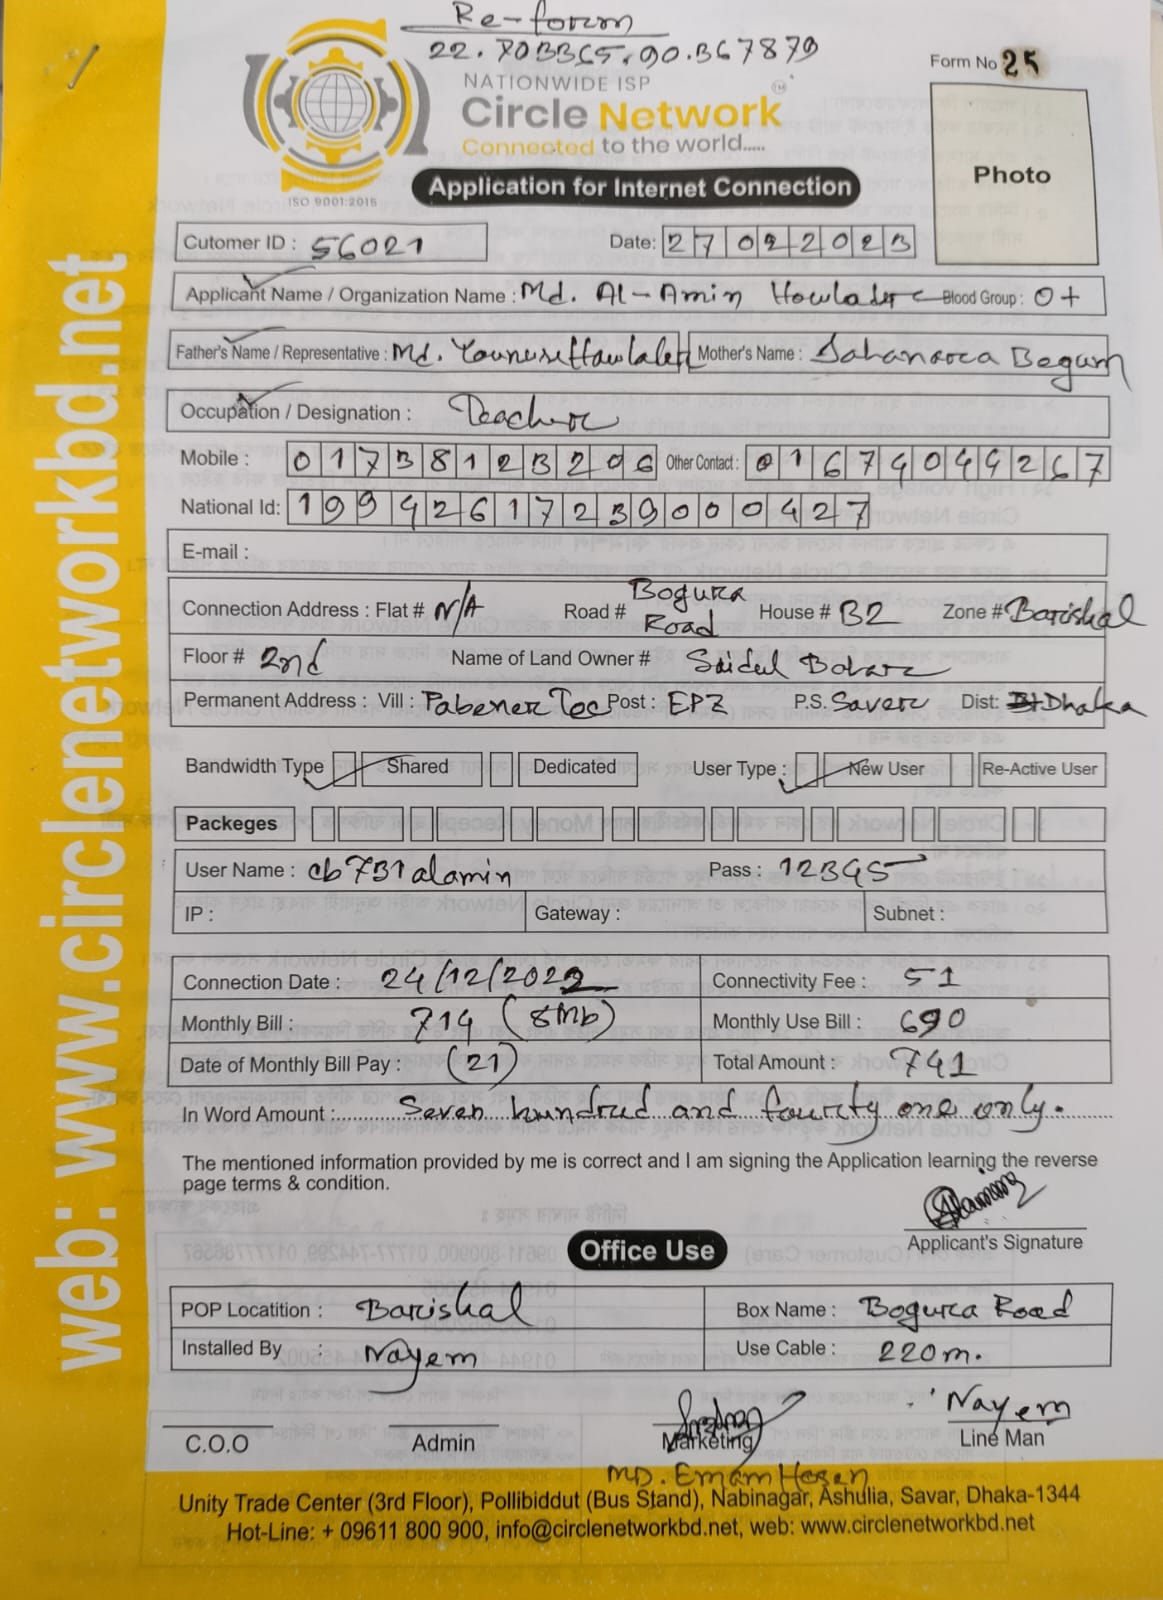 Re-form
22.703365,90.367879
NATIONWIDE ISP
Circle Network
Connected to the world.....
ISO 9001:2015
Form No 25
Photo
Application for Internet Connection
Cutomer ID : 56021 Date: 27022023
Applicant Name / Organization Name : Md. Al-Amin Howlader Blood Group : O+
Father's Name / Representative : Md. Younus Hawlader Mother's Name : Sahanara Begum
Occupation / Designation : Teacher
Mobile : 01738123206 Other Contact : 01674044267
National Id: 19942617239000427
E-mail :
Connection Address : Flat # N/A Road # Bogura Road House # B2 Zone # Barishal
Floor # 2nd Name of Land Owner # Saidul
Permanent Address : Vill : Pabener Tec Post : EPZ P.S. Saver Dist: Dhaka
Bandwidth Type Shared Dedicated User Type : New User Re-Active User
Packeges
User Name : cb731alamin Pass : 12345
IP : Gateway : Subnet :
Connection Date : 24/12/2022 Connectivity Fee : 51
Monthly Bill : 714 (8Mb) Monthly Use Bill : 690
Date of Monthly Bill Pay : (21) Total Amount : 741
In Word Amount :..... Seven hundred and fourty one only.
The mentioned information provided by me is correct and I am signing the Application learning the reverse
page terms & condition.
Applicant's Signature
Office Use
POP Locatition : Barishal Box Name : Bogura Road
Installed By : Nayem Use Cable : 220m.
Nayem
C.O.O Admin Marketing Line Man
MD. Emam Hosen
Unity Trade Center (3rd Floor), Pollibiddut (Bus Stand), Nabinagar, Ashulia, Savar, Dhaka-1344
Hot-Line: + 09611 800 900, info@circlenetworkbd.net, web: www.circlenetworkbd.net
web: www.circlenetworkbd.net